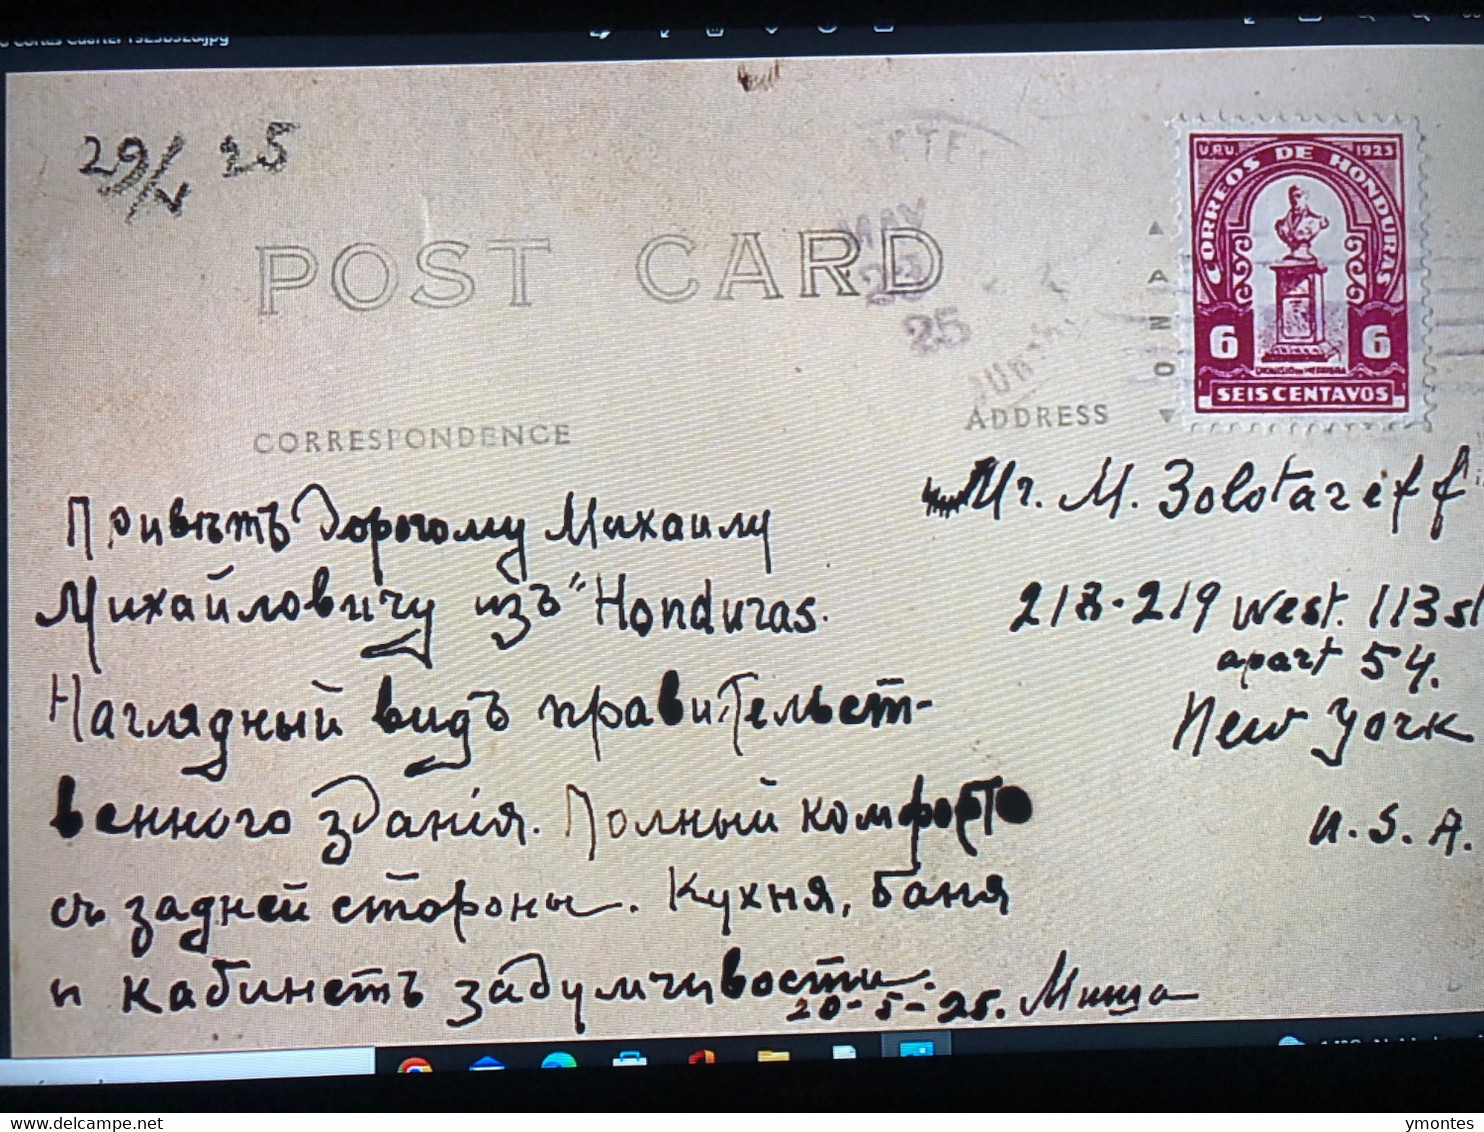 29/V 25
POST CARD
MAY
23
25
CORRESPONDENCE
ADDRESS
AZO
U.P.U. 1923
CORREOS DE HONDURAS
6 6
DIONISIO DE HERRERA
SEIS CENTAVOS
Привѣтъ Дорогому Михаилу
Михайловичу изъ "Honduras.
Наглядный видъ правительст-
веннаго зданія. Полный комфортъ
съ задней стороны. Кухня, баня
и кабинетъ задумчивости.
20-5-25. Миша
Mr. M. Zolotareff
218-219 West. 113 st
apart 54.
New York
U.S.A.
ymontes